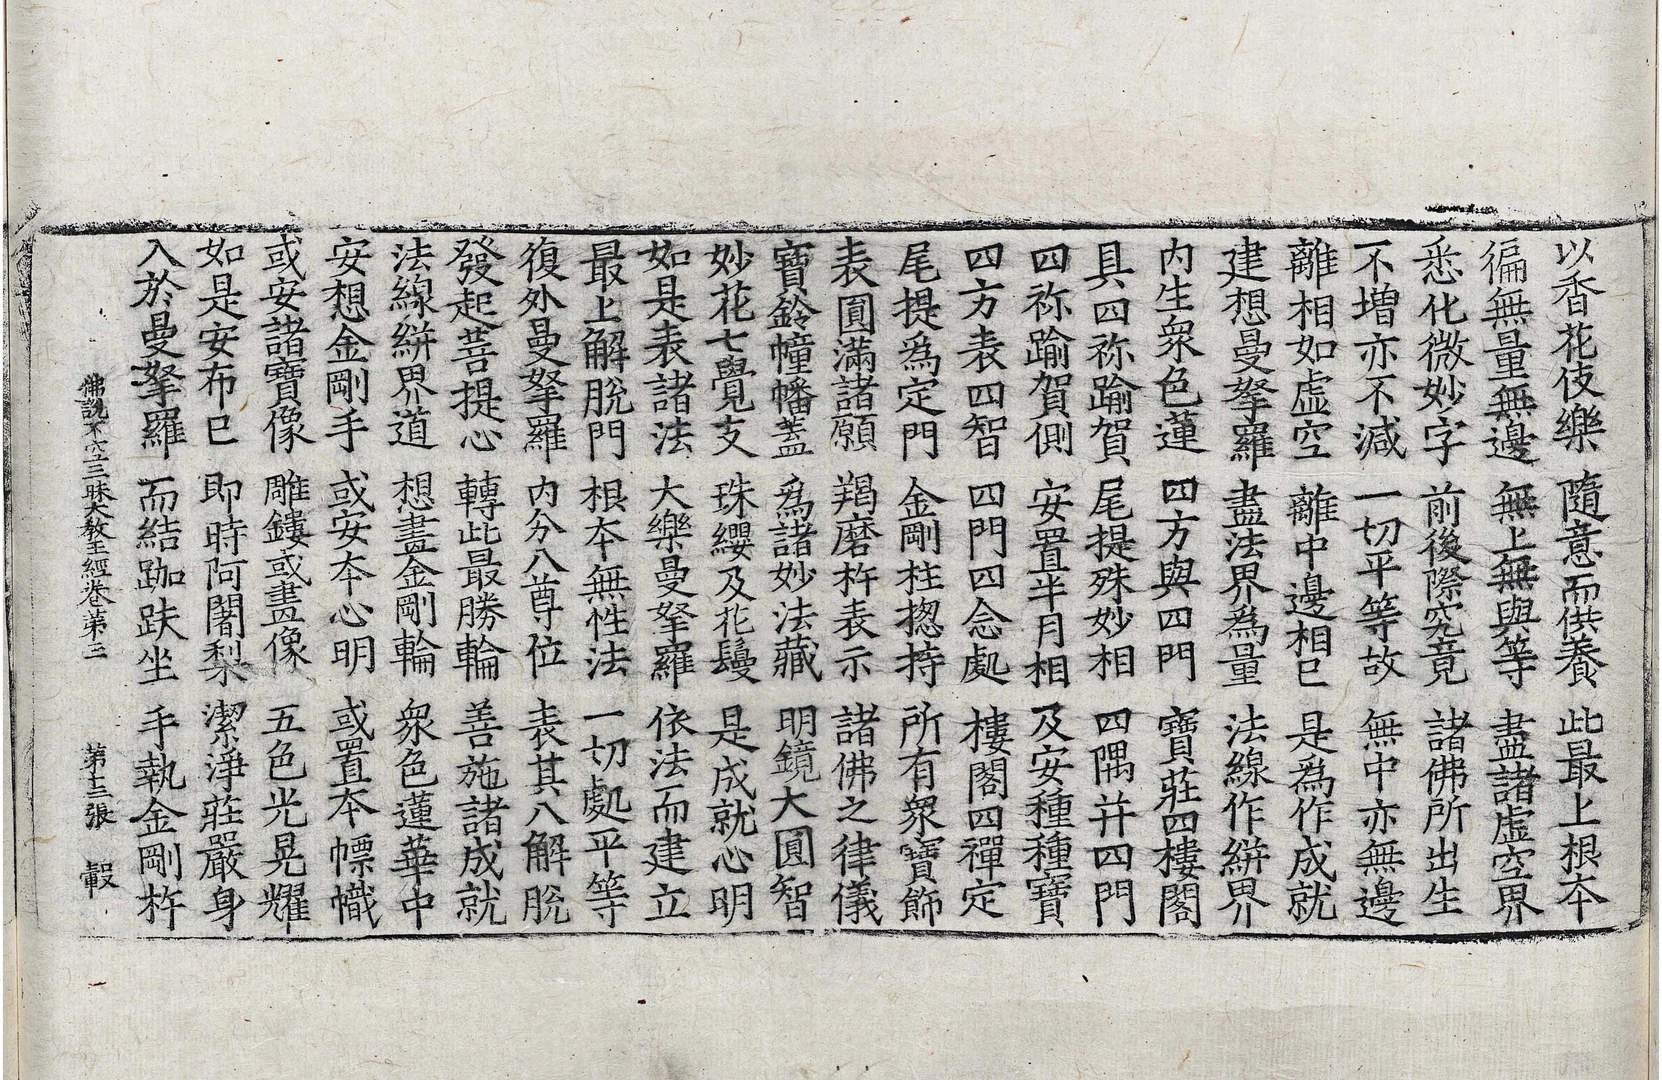 以香花伎樂 隨意而供養 此最上根本
徧無量無邊 無上無與等 盡諸虛空界
悉化微妙字 前後際究竟 諸佛所出生
不增亦不減 一切平等故 無中亦無邊
離相如虛空 離中邊相已 是為作成就
建想曼拏羅 盡法界為量 法線作絣界
內生衆色蓮 四方與四門 寶莊四樓閣
具四祢踰賀 尾提殊妙相 四隅并四門
四祢踰賀側 安置半月相 及安種種寶
四方表四智 四門四念處 樓閣四禪定
尾提為定門 金剛柱揔持 所有衆寶飾
表圓滿諸願 羯磨杵表示 諸佛之律儀
寶鈴幢幡蓋 為諸妙法藏 明鏡大圓智
妙花七覺支 珠纓及花鬘 是成就心明
如是表諸法 大樂曼拏羅 依法而建立
最上解脫門 根本無性法 一切處平等
復外曼拏羅 內分八尊位 表其八解脫
發起菩提心 轉此最勝輪 善施諸成就
法線絣界道 想畫金剛輪 衆色蓮華中
安想金剛手 或安本心明 或置本幖幟
或安諸寶像 雕鏤或畫像 五色光晃耀
如是安布已 即時阿闍梨 潔淨莊嚴身
入於曼拏羅 而結跏趺坐 手執金剛杵
佛說不空三昧大教王經卷第三 第十三張 轂